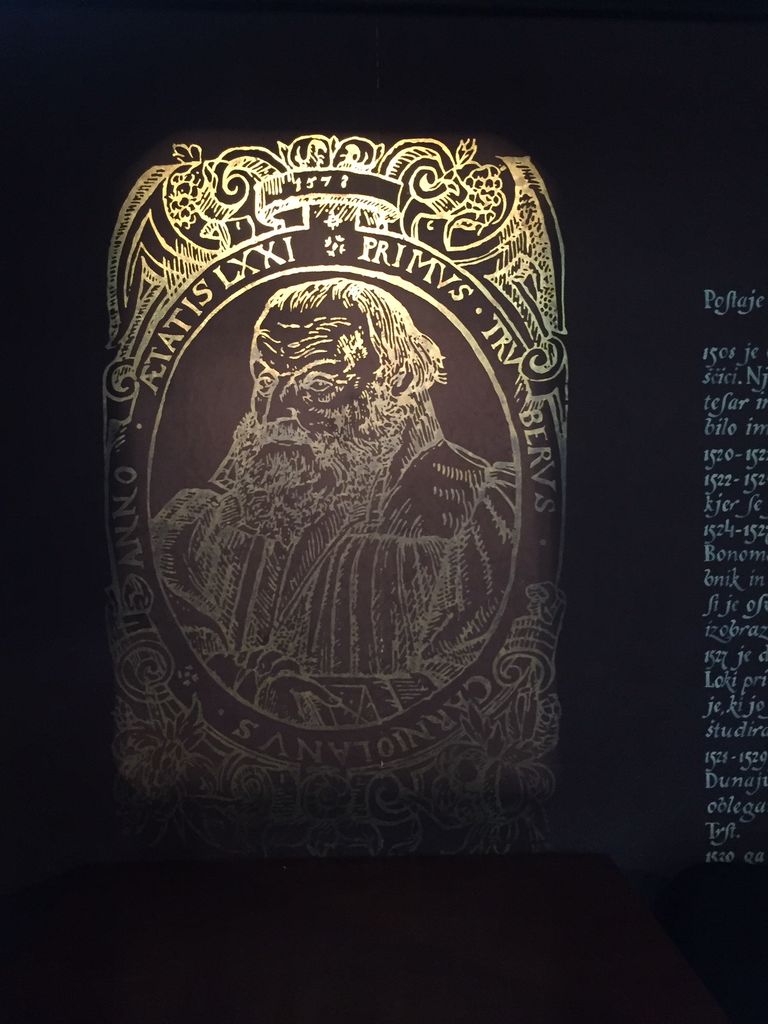 1578
ANNO · ÆTATIS LXXI PRIMVS · TRVBERVS · CARNIOLANVS ·
Postaje
1508 je
ščici. Nj
tesar in
bilo im
1520-152
1522-152
kjer se
1524-152
Bonom
bnik in
si je
izobraz
1527 je d
Loki pri
je, ki jo
študira
1528-1529
Dunaju
oblega
Trst.
1530 ga